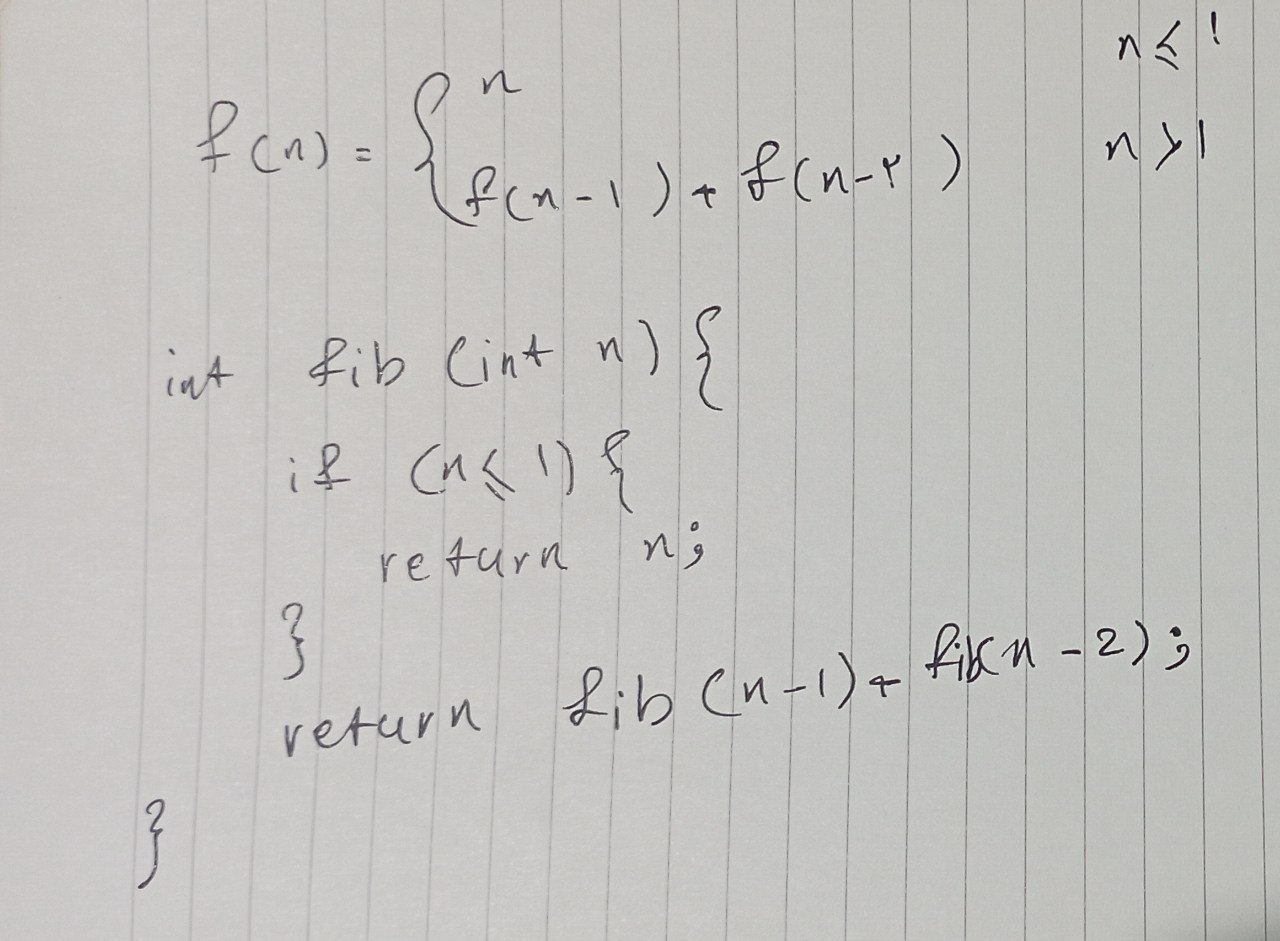 f(n) = { n n ≤ 1
f(n-1) + f(n-۲) n > 1
int fib (int n) {
if (n ≤ 1) {
return n;
}
return fib (n-1) + fib(n-2);
}